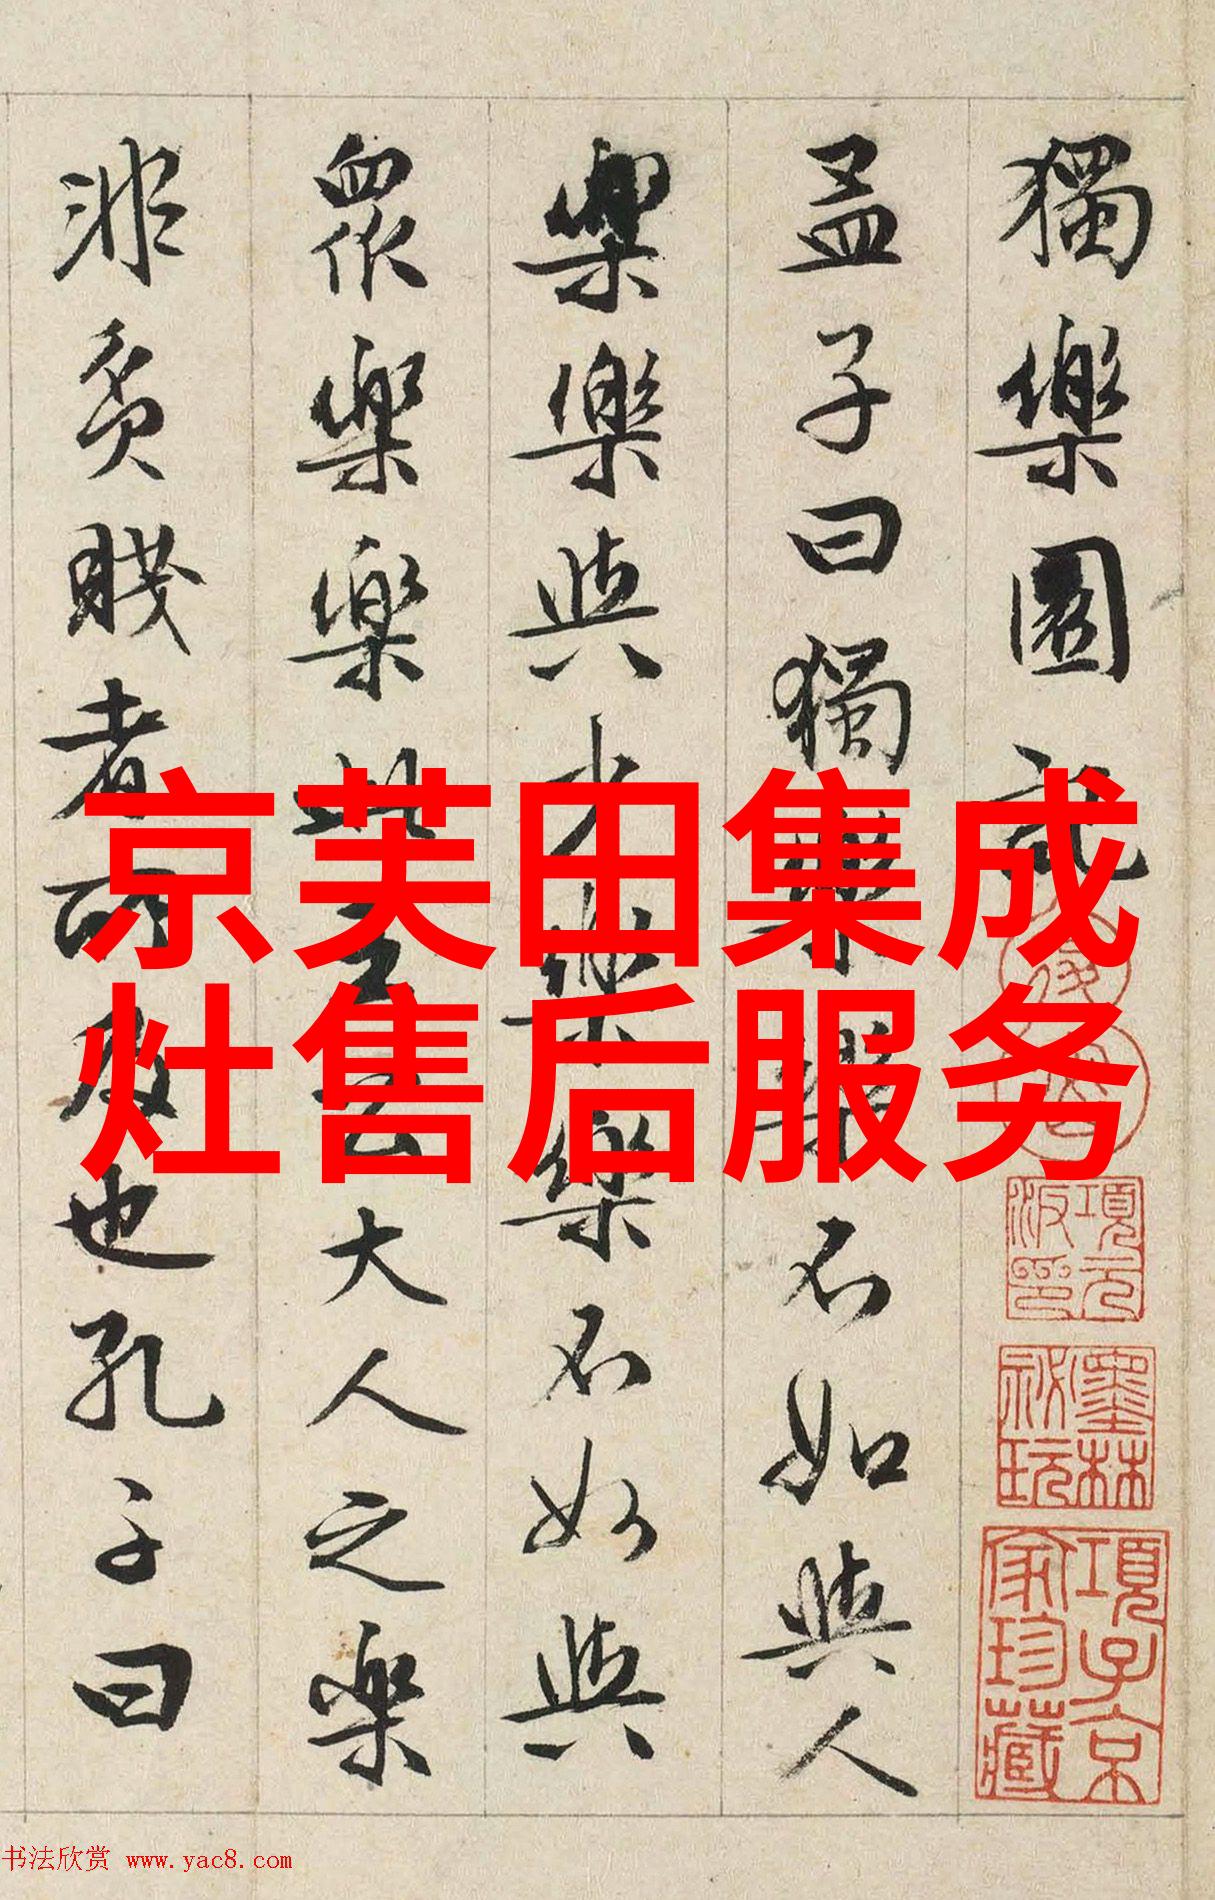 獨樂園記
孟子曰獨樂樂不如與人
樂樂與少樂樂不如與
眾樂樂此王公大人之樂
非貧賤者所及也孔子曰
京芙田集成
灶售后服务
項元汴印
墨林祕玩
項子京家珍藏
书法欣赏 www.yac8.com